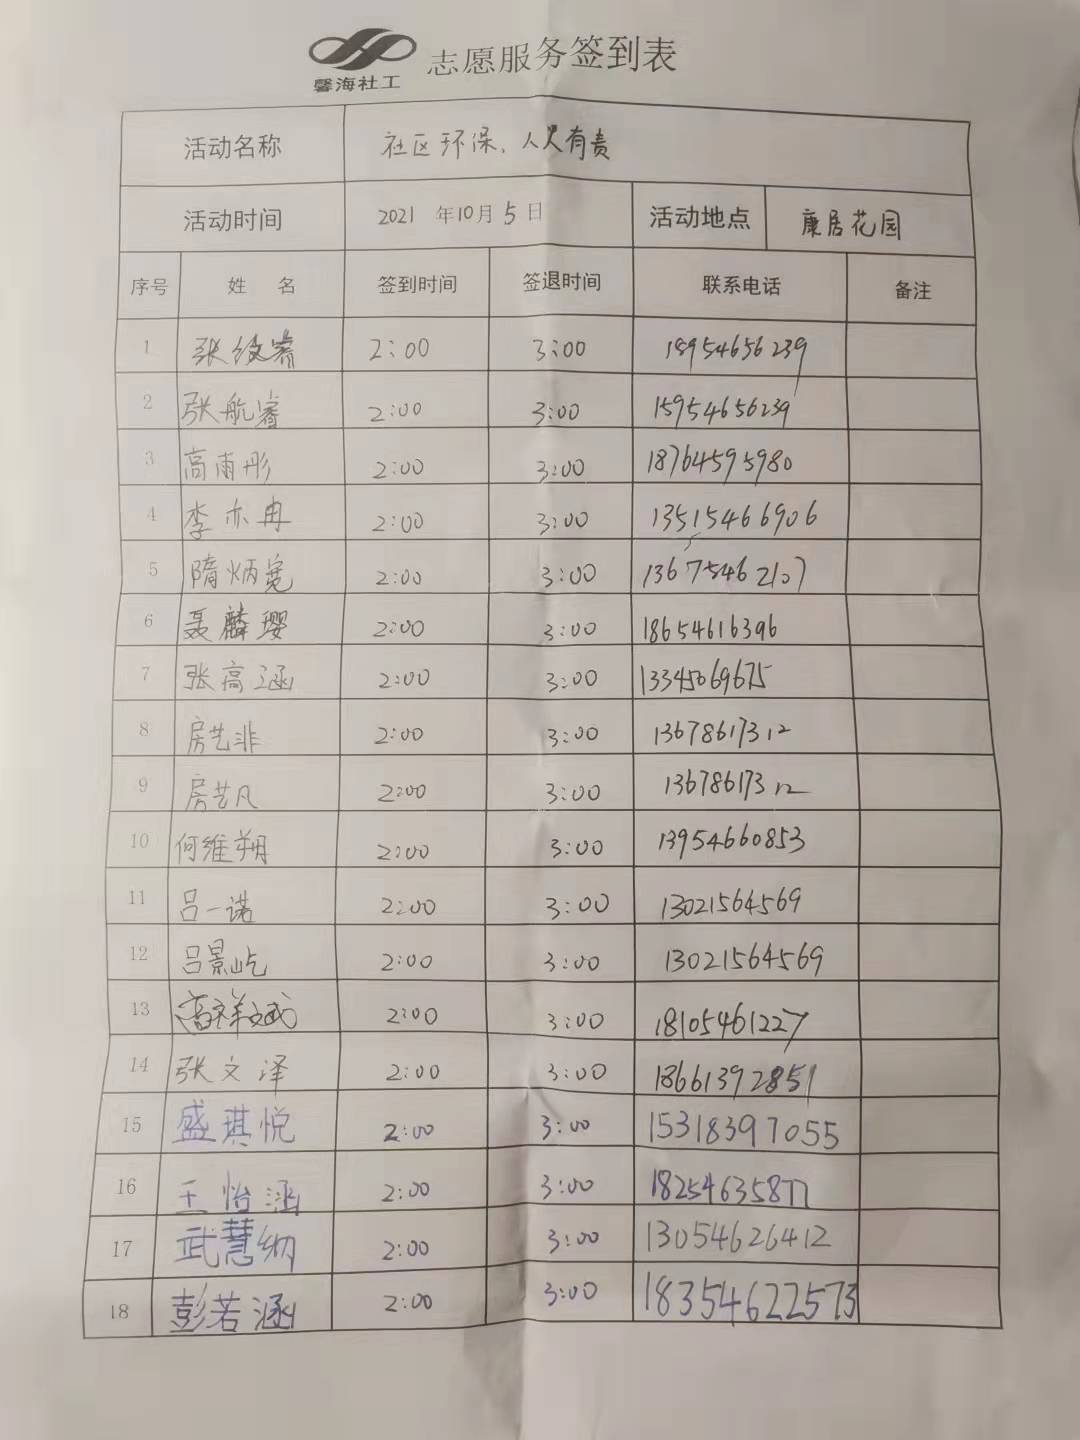 馨海社工 志愿服务签到表
活动名称 社区环保、人人有责
活动时间 2021 年10月5日 活动地点 康居花园
序号 姓 名 签到时间 签退时间 联系电话 备注
1 张纹睿 2:00 3:00 18954656239
2 张航睿 2:00 3:00 15954656239
3 高雨彤 2:00 3:00 18764595980
4 李亦冉 2:00 3:00 13515466906
5 隋炳宽 2:00 3:00 13675462107
6 聂麟璎 2:00 3:00 18654616396
7 张高涵 2:00 3:00 13345069675
8 房艺非 2:00 3:00 13678617312
9 房艺凡 2:00 3:00 13678617312
10 何维朔 2:00 3:00 13954660853
11 吕一诺 2:00 3:00 13021564569
12 吕景屹 2:00 3:00 13021564569
13 高祥斌 2:00 3:00 18105461227
14 张文泽 2:00 3:00 18661392851
15 盛琪悦 2:00 3:00 15318397055
16 王怡涵 2:00 3:00 18254635877
17 武慧纳 2:00 3:00 13054626412
18 彭若涵 2:00 3:00 18354622573